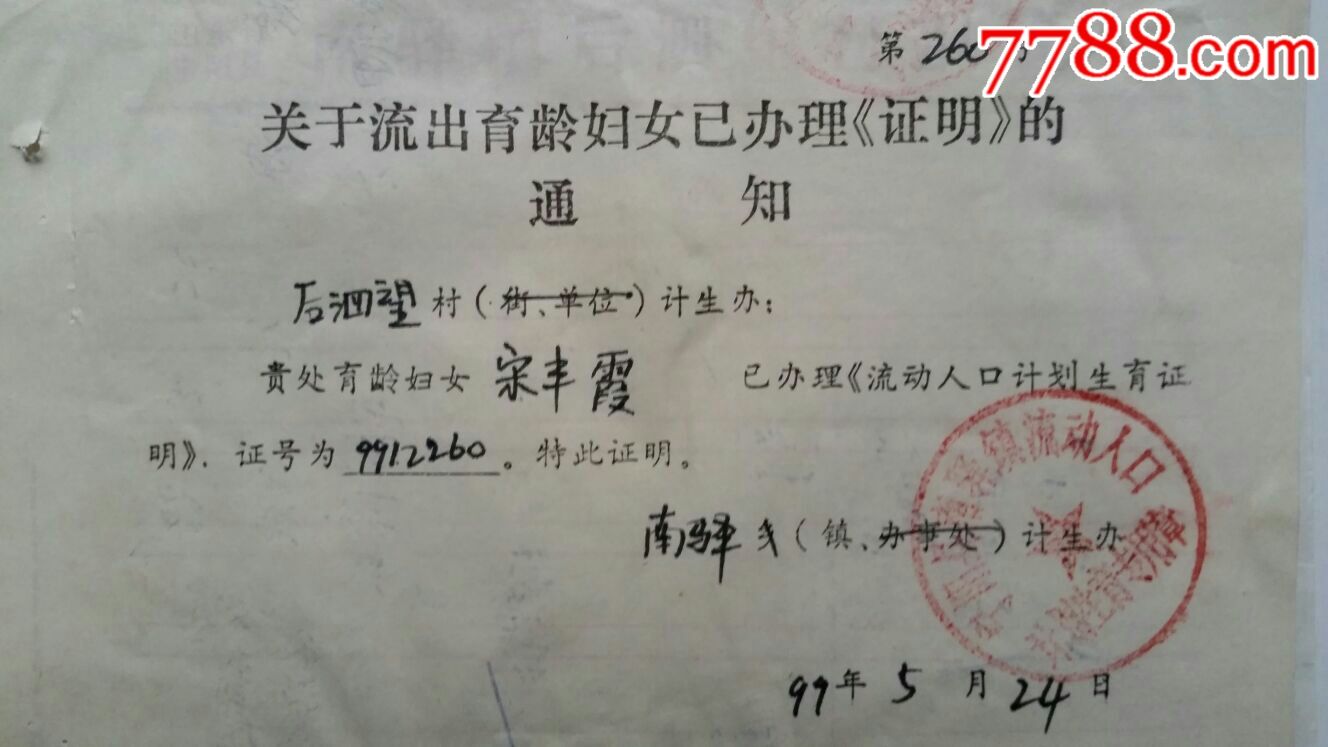 第260号
7788.com
关于流出育龄妇女已办理《证明》的
通 知
后泗望村（街、单位）计生办：
贵处育龄妇女 宋丰霞 已办理《流动人口计划生育证
明》，证号为 9912260。特此证明。
南驿乡（镇、办事处）计生办
镇流动人口
99年 5 月 24 日